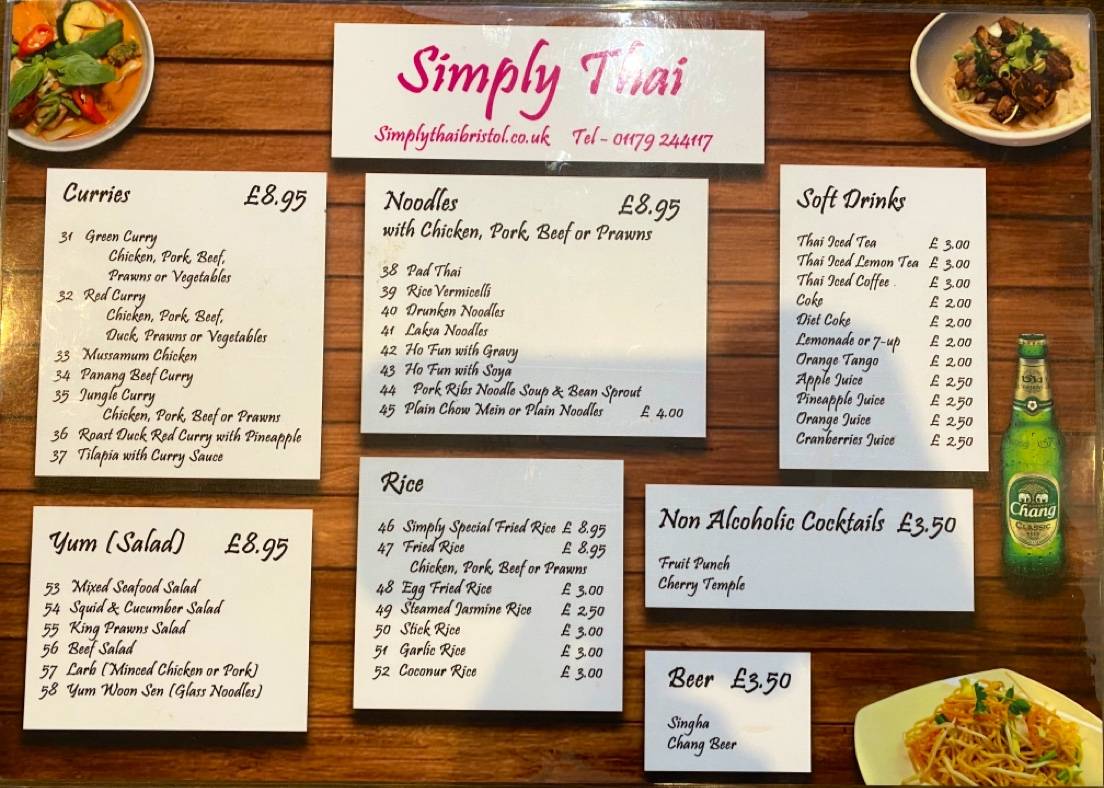 Simply Thai
Simplythaibristol.co.uk Tel - 01179 244117
Curries £8.95
31 Green Curry
Chicken, Pork, Beef,
Prawns or Vegetables
32 Red Curry
Chicken, Pork, Beef,
Duck, Prawns or Vegetables
33 Mussamum Chicken
34 Panang Beef Curry
35 Jungle Curry
Chicken, Pork, Beef or Prawns
36 Roast Duck Red Curry with Pineapple
37 Tilapia with Curry Sauce
Noodles £8.95
with Chicken, Pork, Beef or Prawns
38 Pad Thai
39 Rice Vermicelli
40 Drunken Noodles
41 Laksa Noodles
42 Ho Fun with Gravy
43 Ho Fun with Soya
44 Pork Ribs Noodle Soup & Bean Sprout
45 Plain Chow Mein or Plain Noodles £ 4.00
Soft Drinks
Thai Iced Tea £ 3.00
Thai Iced Lemon Tea £ 3.00
Thai Iced Coffee . £ 3.00
Coke £ 2.00
Diet Coke £ 2.00
Lemonade or 7-up £ 2.00
Orange Tango £ 2.00
Apple Juice £ 2.50
Pineapple Juice £ 2.50
Orange Juice £ 2.50
Cranberries Juice £ 2.50
Yum (Salad) £8.95
53 Mixed Seafood Salad
54 Squid & Cucumber Salad
55 King Prawns Salad
56 Beef Salad
57 Larb (Minced Chicken or Pork)
58 Yum Woon Sen (Glass Noodles)
Rice
46 Simply Special Fried Rice £ 8.95
47 Fried Rice £ 8.95
Chicken, Pork, Beef or Prawns
48 Egg Fried Rice £ 3.00
49 Steamed Jasmine Rice £ 2.50
50 Stick Rice £ 3.00
51 Garlic Rice £ 3.00
52 Coconur Rice £ 3.00
Non Alcoholic Cocktails £3.50
Fruit Punch
Cherry Temple
Beer £3.50
Singha
Chang Beer
Chang
CLASSIC